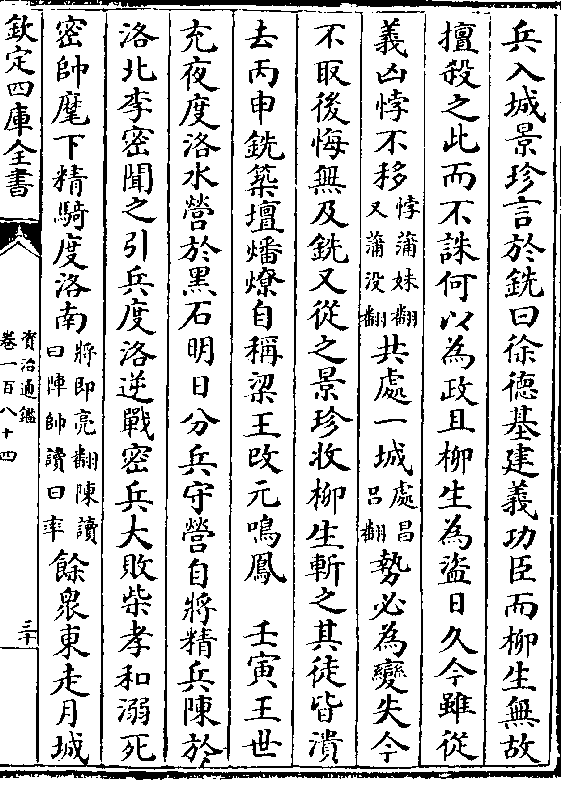 兵入城景珍言於銑曰徐德基建義功臣而柳生無故
擅殺之此而不誅何以為政且柳生為盜日久今雖從
義凶悖不移悖蒲妹翻又蒲没翻共處一城處昌吕翻勢必為變失今
不取後悔無及銑又從之景珍收柳生斬之其徒皆潰
去丙申銑築壇燔燎自稱梁王改元鳴鳳　壬寅王世
充夜度洛水營於黑石明日分兵守營自將精兵陳於
洛北李密聞之引兵度洛逆戰密兵大敗柴孝和溺死
密帥麾下精騎度洛南將即亮翻陳讀曰陣帥讀曰率餘衆東走月城
欽定四庫全書
資治通鑑
卷一百八十四
三十